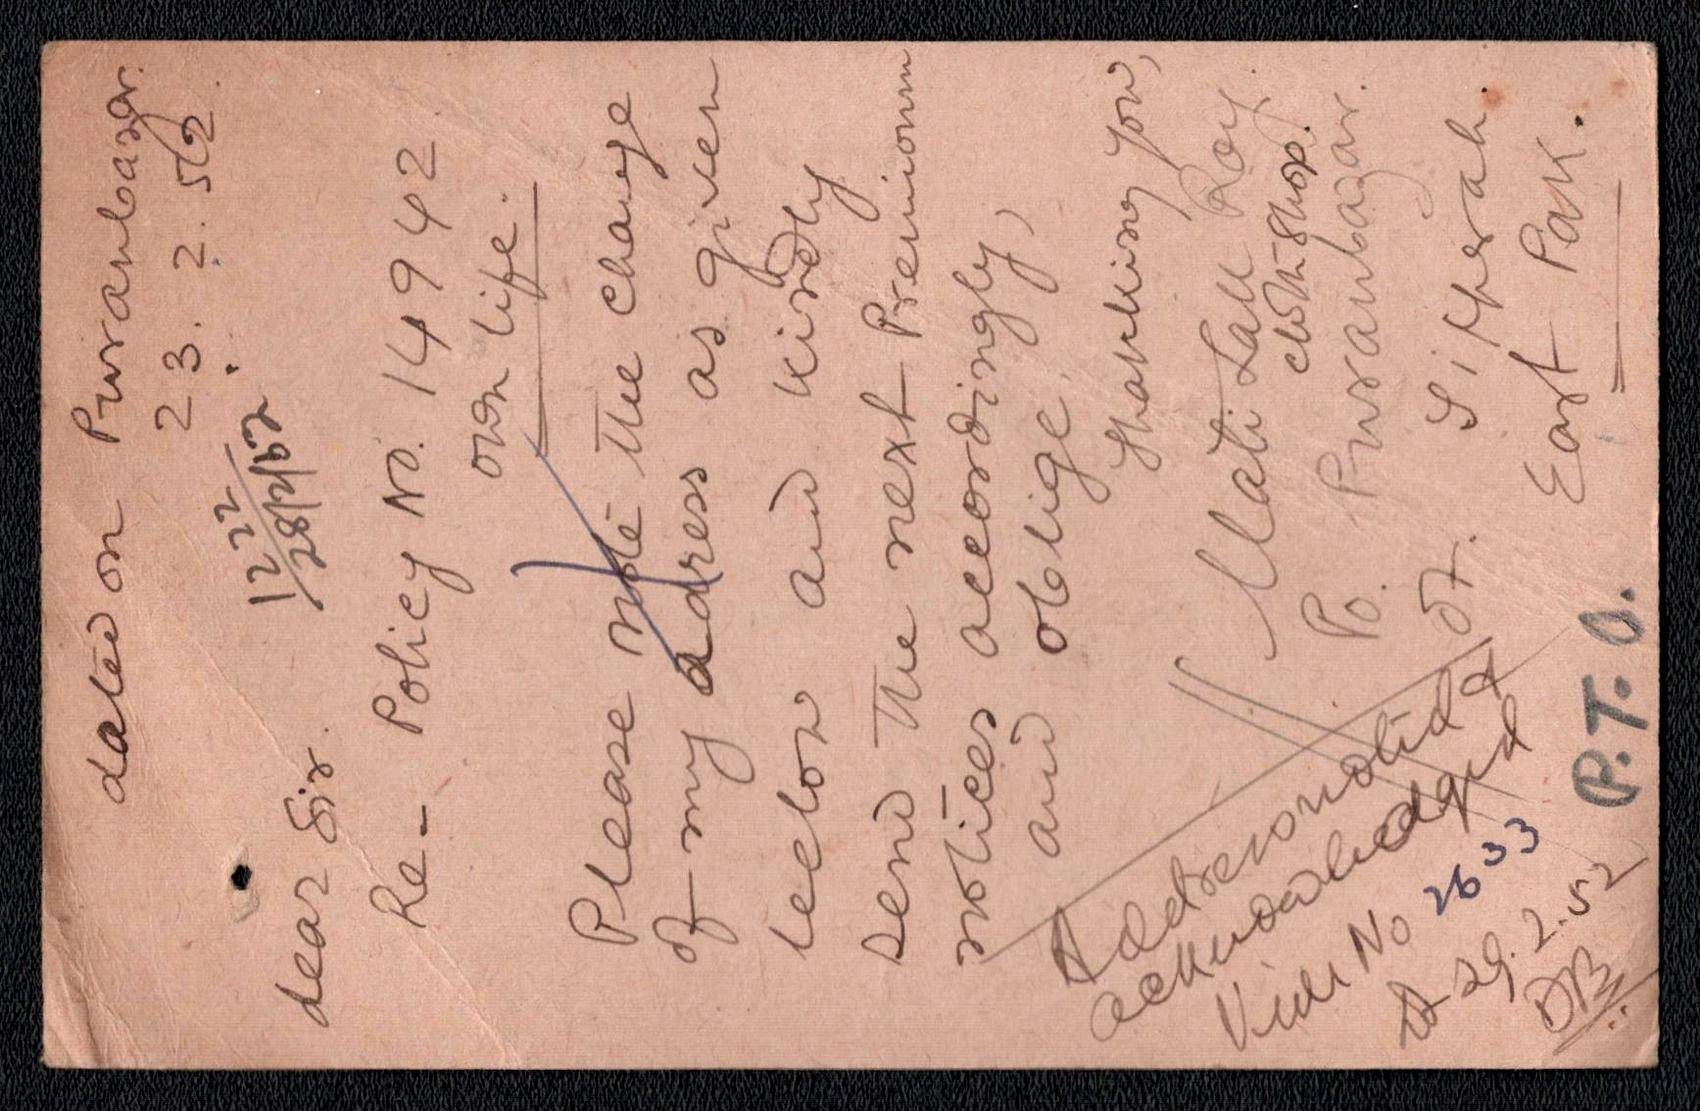 dated on Puranbazar.
23.2.52
1222
28/2/52
Dear Sir.
Re- Policy No. 14942
own life.
Please note the change
of my address as given
below and kindly
send the next Premium
notices accordingly,
and oblige.
Thanking you,
Mati Lall Roy.
cloth shop.
Po. Puranbazar.
Dt. Tipperah.
East Pak.
Address noted &
acknowledged
Vide No 2633
Dt 29.2.52
DB
P.T.O.